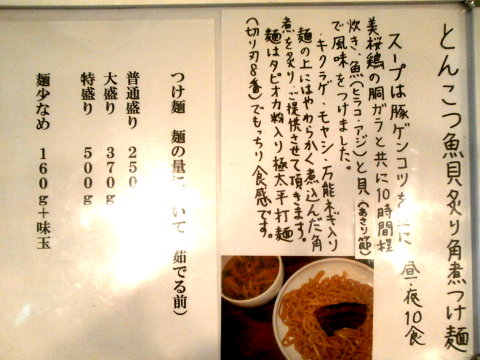 とんこつ魚貝炙り角煮つけ麺
昼・夜10食
スープは豚ゲンコツを
に
美桜鶏の胴ガラと共に10時間程
炊き、魚(ヒラコ・アジ)と貝(あさり節)
で風味をつけました。
キクラゲ・モヤシ・万能ネギ入り
麺の上にはやわらかく煮込んだ角
煮を炙りご提供させて頂きます。
麺はタピオカ粉入り極太平打麺
(切り刃8番)でもっちり食感です。
つけ麺 麺の量に いて 茹でる前)
普通盛り 250
大盛り 370g
特盛り 500g
麺少なめ 160g+味玉